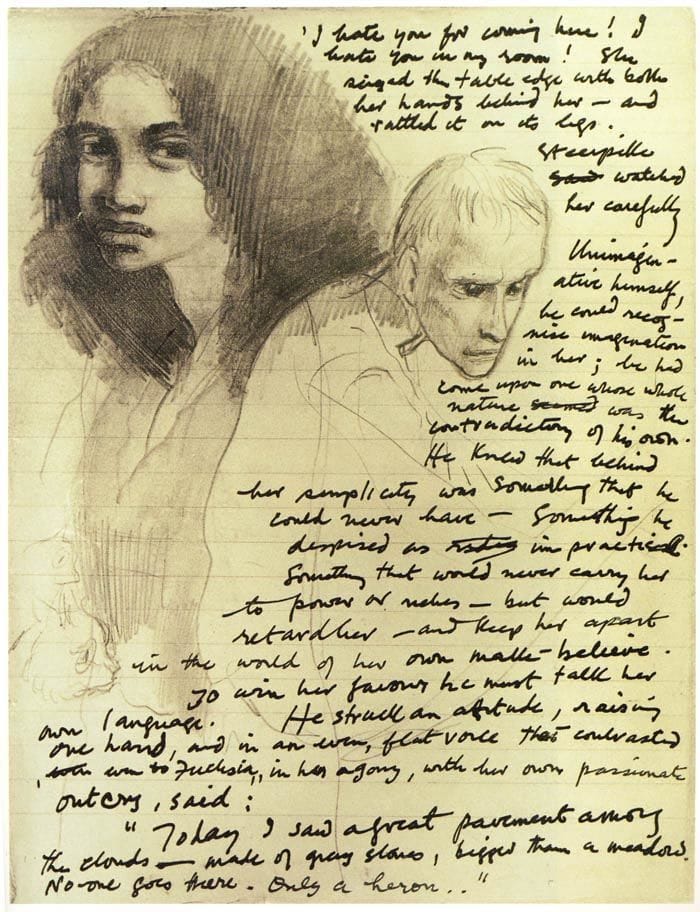 'I hate you for coming here! I
hate you in my room! She
siezed the table edge with both
her hands behind her — and
rattled it on its legs.
Steerpike
said watched
her carefully
Unimagin-
ative himself,
he could recog-
nise imagination
in her; he had
come upon one whose whole
nature seemed was the
contradictory of his own.
He knew that behind
her simplicity was something that he
could never have — something he
despised as impractical.
Something that would never carry her
to power or riches — but would
retard her — and keep her apart
in the world of her own make-believe.
To win her favour he must talk her
own language. He struck an attitude, raising
one hand, and in an even, flat voice that contrasted
even to Fuchsia, in her agony, with her own passionate
outcry, said:
"Today I saw a great pavement among
the clouds — made of grey stones, bigger than a meadow.
No-one goes there. Only a heron.."